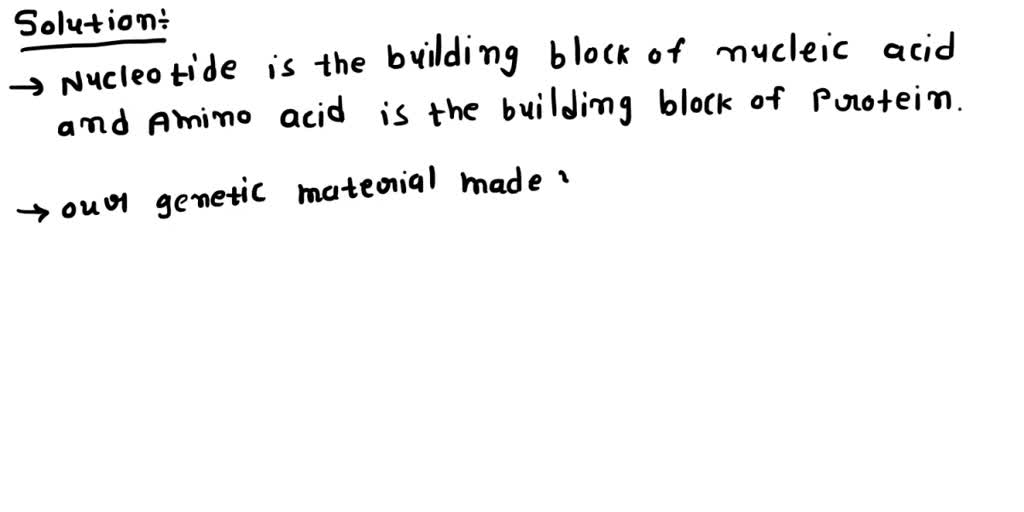 Solution:
→ Nucleotide is the building block of nucleic acid
and Amino acid is the building block of Protein.
→ our genetic material made